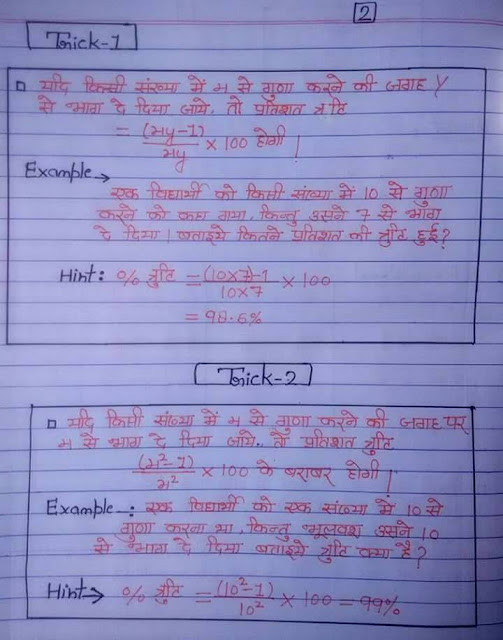 2
Trick-1
यदि किसी संख्या में x से गुणा करने की जगह y
से भाग दे दिया जाये, तो प्रतिशत त्रुटि
= (xy-1)/xy × 100 होगी।
Example →
एक विद्यार्थी को किसी संख्या में 10 से गुणा
करने को कहा गया, किन्तु उसने 7 से भाग
दे दिया। बताइये कितने प्रतिशत की त्रुटि हुई?
Hint: % त्रुटि = (10×7)-1/10×7 × 100
= 98.6%
Trick-2
यदि किसी संख्या में x से गुणा करने की जगह पर
x से भाग दे दिया जाये, तो प्रतिशत त्रुटि
(x²-1)/x² × 100 के बराबर होगी।
Example -: एक विद्यार्थी को एक संख्या में 10 से
गुणा करना था, किन्तु भूलवश उसने 10
से भाग दे दिया बताइये त्रुटि क्या है?
Hint → % त्रुटि = (10²-1)/10² × 100 = 99%